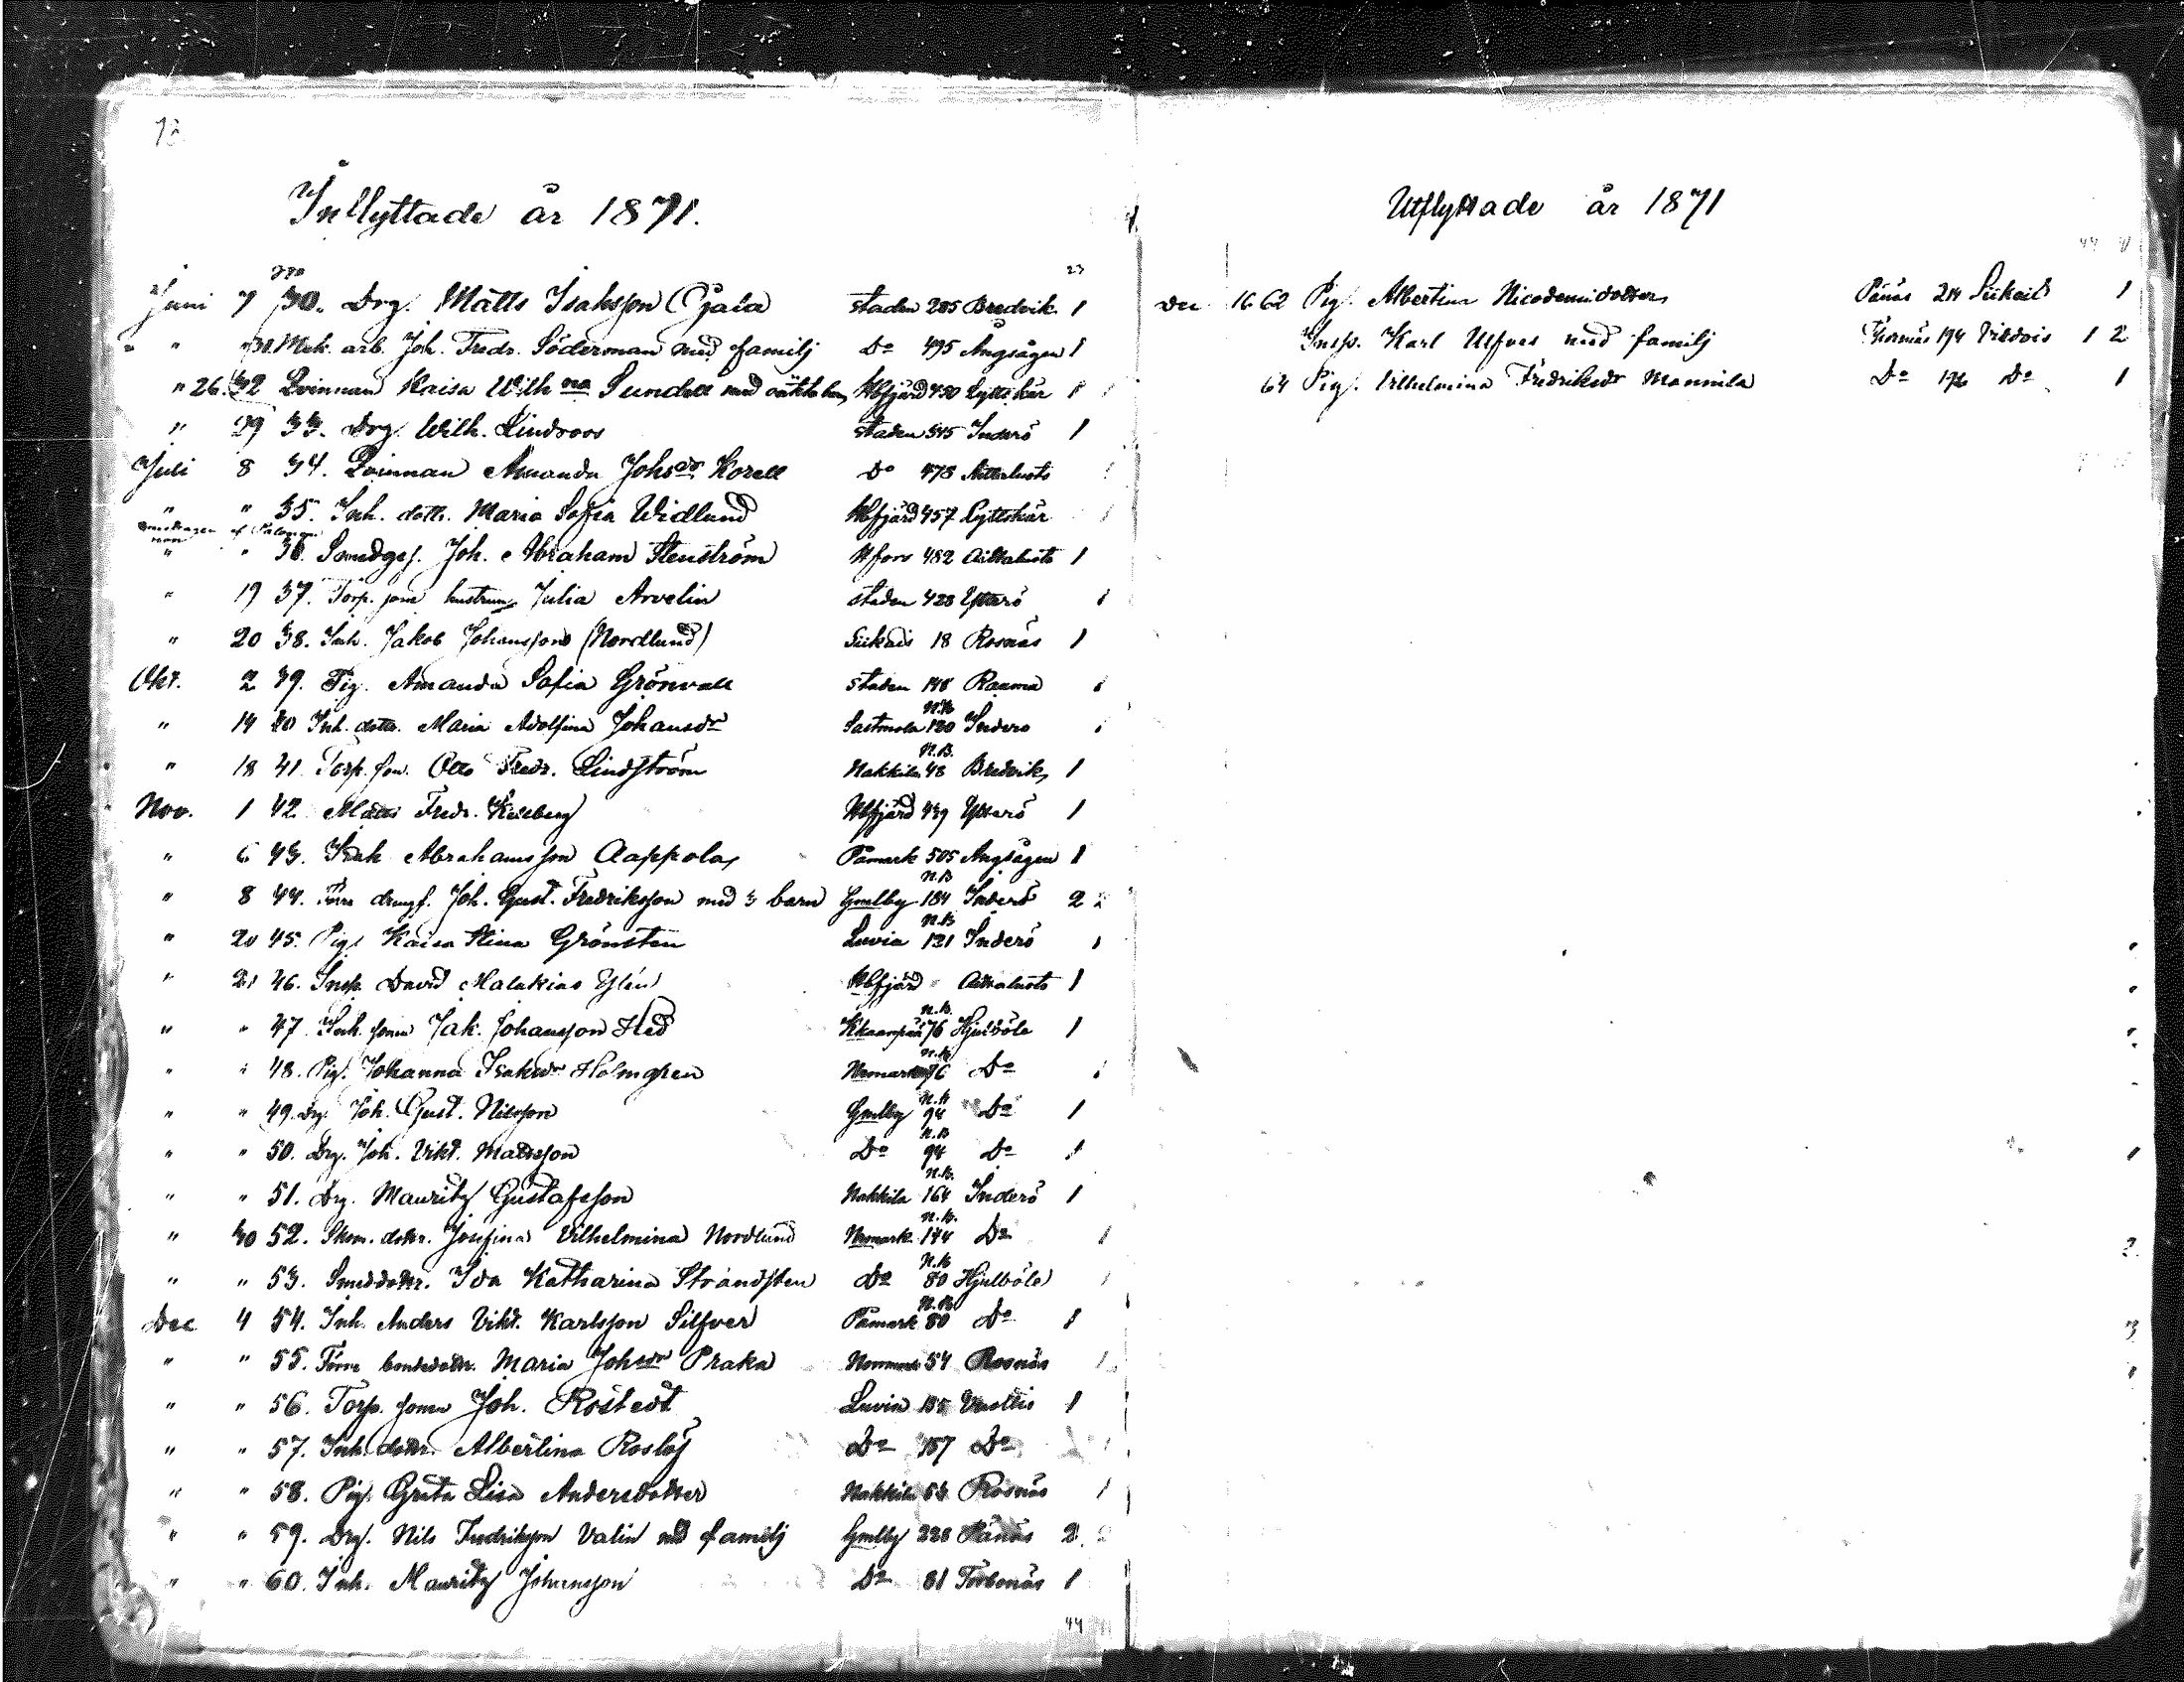 Inflyttade år 1871.
23
Juni 7 30. Drg. Matts Isaksson (Gjala staden 285 Bredvik 1
" " 31. Mek. arb. Joh. Fredr. Söderman med familj Do 495 Ångsågen 1
" 26. 32 Qvinnan Kaisa Wilhna Sundell med Ulfsjärd 450 Lyttskär 1
" 29 33. Drg. Wilh. Lindroos staden 345 Inderö 1
Juli 8 34. Qvinnan Amanda Johsdr Korell Do 478 Aittaluoto
" " 35. Inh. dottr. Maria Sofia Widlund Ulfsjärd 457 Lyttskär
" " 36. Smedges. Joh. Abraham Stenström 482 Aittaluoto 1
" 19 37. Torp. hustrun Julia Arvelin staden 428 Ytterö
" 20 38. Inh. Jakob Johansson (Nordlund) Siikais 18 Rosnäs 1
Okt. 2 39. Pig. Amanda Sofia Grönvall staden 148 Rauma
" 14 40 Inh. dottr. Maria Adolfina Johansdr Sastmola N.B. 120 Inderö
" 18 41. Torp. son. Otto Fredr. Lindström Nakkila N.B. 48 Bredvik 1
Nov. 1 42. Matts Fredr. Ulfsjärd 439 Ytterö 1
" 6 43. Isak Abrahamsson Aappola Påmark 505 Ångsågen 1
" 8 44. Förre drang. Joh. Gust. Fredriksson med 3 barn Gmlby N.B 184 Inderö 2 2
" 20 45. Pig. Kaisa Stina Grönsten Luvia N.B 121 Inderö
" 21 46. Insp. David Malakias Ulfsjärd " Aittaluoto 1
" " 47. Inh. sonen Jak. Johansson Hed N.B. 76 Hjulböle 1
" " 48. Pig. Johanna Isaksdr Holmgren Nrmark N.B. 76 Do
" " 49. Drg. Joh. Gust. Nilsson Gmlby N.B 94 Do 1
" " 50. Drg. Joh. Vikt. Mattsson Do N.B 94 Do 1
" " 51. Drg. Mauritz Gustafsson Nakkila N.B. 164 Inderö 1
" 30 52. Skom. dottr. Josefina Vilhelmina Nordlund Nrmark N.B. 144 Do
" " 53. Smeddottr. Ida Katharina Strandsten Do N.B 80 Hjulböle
Dec 4 54. Inh. Anders Vikt. Karlsson Silfver Påmark N.B. 80 Do 1
" " 55. Förre bondedottr. Maria Johsdr Praka 54 Rosnäs
" " 56. Torp. sonen Joh. Rostedt Luvia 185 1
" " 57. Inh. dottr. Albertina Roslöf Do 187 Do
" " 58. Pig. Greta Lisa Andersdotter Nakkila 53 Rosnäs
" " 59. Drg. Nils Fredriksson Valin med familj Gmlby 228 Pänäs 2 2
" " 60. Inh. Mauritz Johansson Do 81 Torbonäs 1
44
Utflyttade år 1871
44
Dec 16 62 Pig. Albertina Nicodemidotter Pänäs 214 Siikais 1
Insp. Karl Ulfves med familj 194 1 2
64 Pig. Vilhelmina Fredriksdr Mannila Do 176 Do 1